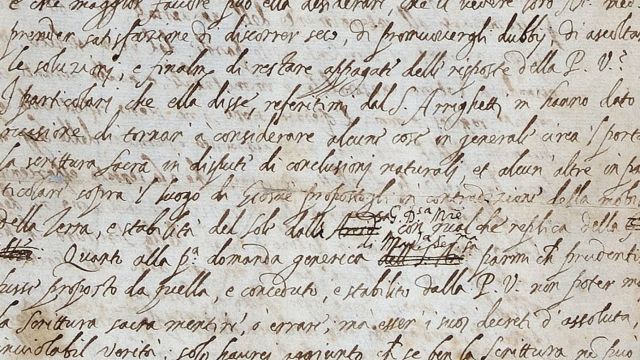 e che maggior favore può ella desiderare, che il vedere loro
prender satisfazione di discorrer seco, di promuovergli dubbij, di ascoltar
le soluzioni, e finalm.e di restare appagati delle risposte della P. V.?
I particolari che ella disse referitimi dal S. Arrighetti m hanno dato
casione di tornar à considerare alcune cose in generale circa 'l port
la scrittura sacra in dispute di conclusioni naturali, et alcun' altre in pa
ticolari sopra 'l luogo di Giosue propostogli in contradizione della mob
della Terra, e stabilità del Sole dalla G. D.sa M.re con qualche replica della
Quanto alla p.a domanda generica di M.ma Ser.ma parmi ch' prudentis
fusse proposto da quella, e conceduto, e stabilito dalla P. V. non poter ma
la scrittura sacra mentire, ò errare, mà esser i suoi decreti d'assoluta,
inviolabil verità: solo haurei aggiunto ch' se ben la scrittura nō può